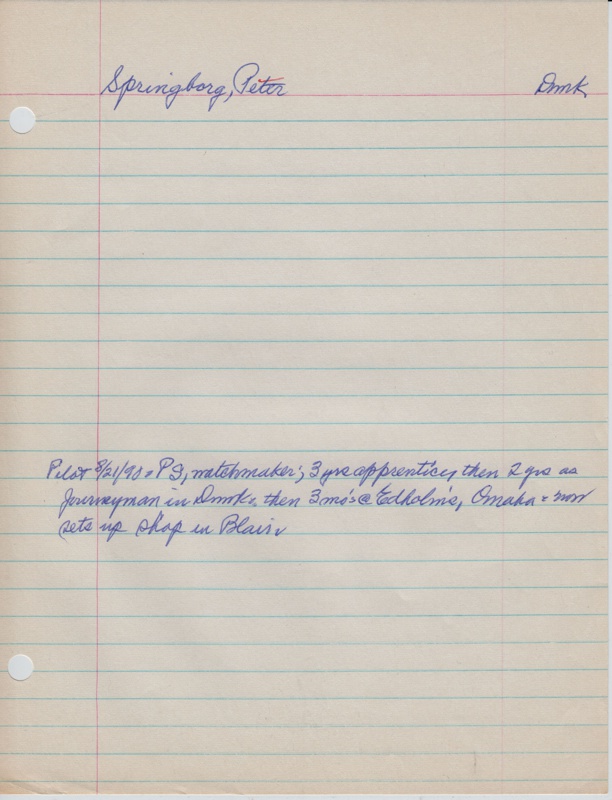 Springborg, Peter Dnmk
Pilot 8/21/90 = PS, watchmaker; 3 yrs apprentice, then 2 yrs as
journeyman in Dnmk, then 3 mo's @ Edholm's, Omaha & now
sets up shop in Blair